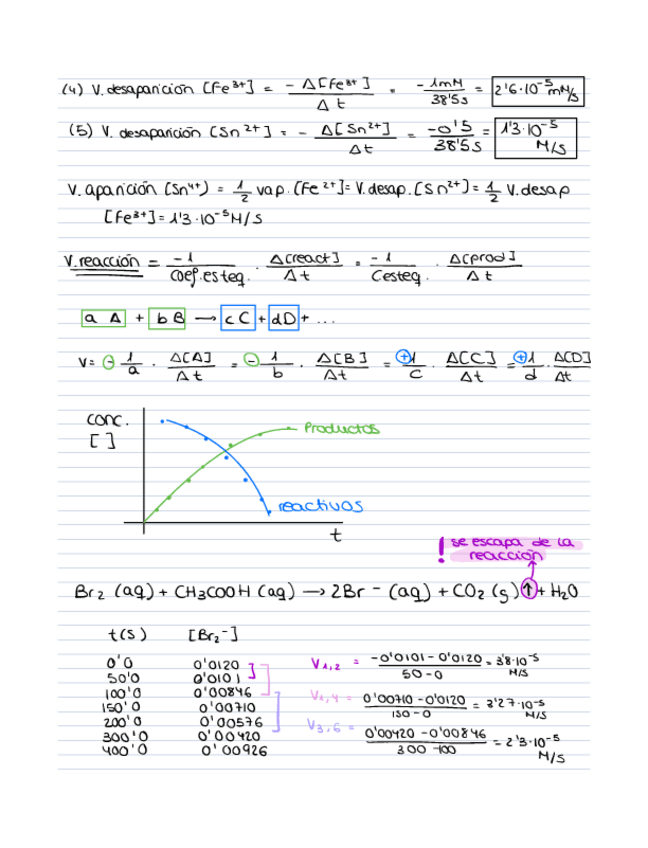 (4) V. desaparición [Fe³⁺] = - Δ[Fe³⁺] / Δt = - 1mM / 38'5s = 2'6·10⁻⁵ mM/s
(5) V. desaparición [Sn²⁺] = - Δ[Sn²⁺] / Δt = -0'5 / 38'5s = 1'3·10⁻⁵ M/s
V. aparición [Sn⁴⁺) = 1/2 vap. [Fe²⁺] = V. desap. [Sn²⁺] = 1/2 V. desap
[Fe³⁺] = 1'3·10⁻⁵ M/s
V. reacción = -1 / Coef. esteq. · Δ[react] / Δt = -1 / C esteq. · Δ[prod] / Δt
a A + b B → c C + d D + ...
V = - 1/a · Δ[A] / Δt = - 1/b · Δ[B] / Δt = + 1/c · Δ[C] / Δt = + 1/d · Δ[D] / Δt
conc.
[ ]
Productos
reactivos
t
! se escapa de la
reacción
Br₂ (aq) + CH₃COOH (aq) → 2Br⁻ (aq) + CO₂ (g) ↑ + H₂O
t(s) [Br₂⁻]
0'0 0'0120
50'0 0'0101
100'0 0'00846
150'0 0'00710
200'0 0'00576
300'0 0'00420
400'0 0'00926
V₁,₂ = -0'0101 - 0'0120 / 50 - 0 = 3'8·10⁻⁵ M/s
V₁,₄ = 0'00710 - 0'0120 / 150 - 0 = 3'27·10⁻⁵ M/s
V₃,₆ = 0'00420 - 0'00846 / 300 - 100 = 2'3·10⁻⁵ M/s